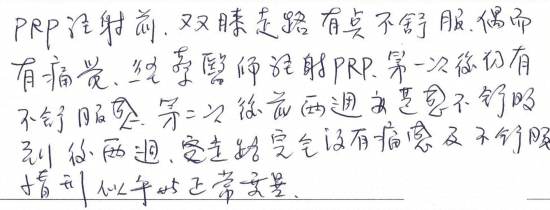 PRP注射前,双膝走路有点不舒服.偶而
有痛觉.经李醫师注射PRP.第一次後仍有
不舒服感.第二次後前两週 感不舒服
到後两週.走路完全没有痛感及不舒服
情形 似乎 正常